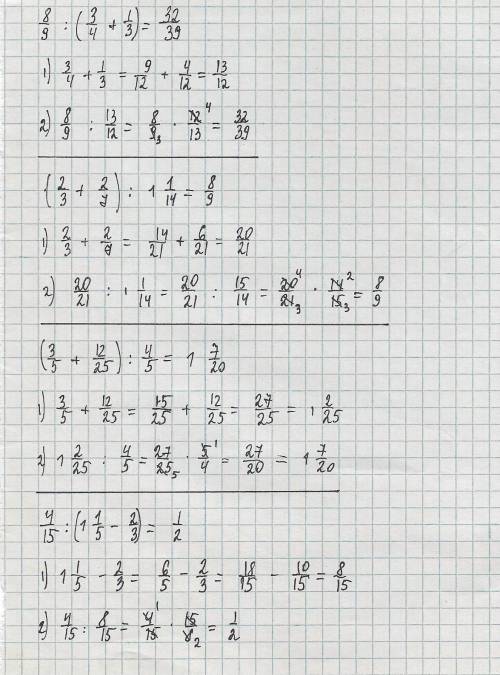 8/9 : (3/4 + 1/3) = 32/39
1) 3/4 + 1/3 = 9/12 + 4/12 = 13/12
2) 8/9 : 13/12 = 8/9 3 · 12/13 4 = 32/39
(2/3 + 2/7) : 1 1/14 = 8/9
1) 2/3 + 2/7 = 14/21 + 6/21 = 20/21
2) 20/21 : 1 1/14 = 20/21 : 15/14 = 20/21 4 3 · 14/15 2 3 = 8/9
(3/5 + 12/25) : 4/5 = 1 7/20
1) 3/5 + 12/25 = 15/25 + 12/25 = 27/25 = 1 2/25
2) 1 2/25 : 4/5 = 27/25 5 · 5/4 1 = 27/20 = 1 7/20
4/15 : (1 1/5 - 2/3) = 1/2
1) 1 1/5 - 2/3 = 6/5 - 2/3 = 18/15 - 10/15 = 8/15
2) 4/15 : 8/15 = 4/15 1 · 15/8 2 = 1/2